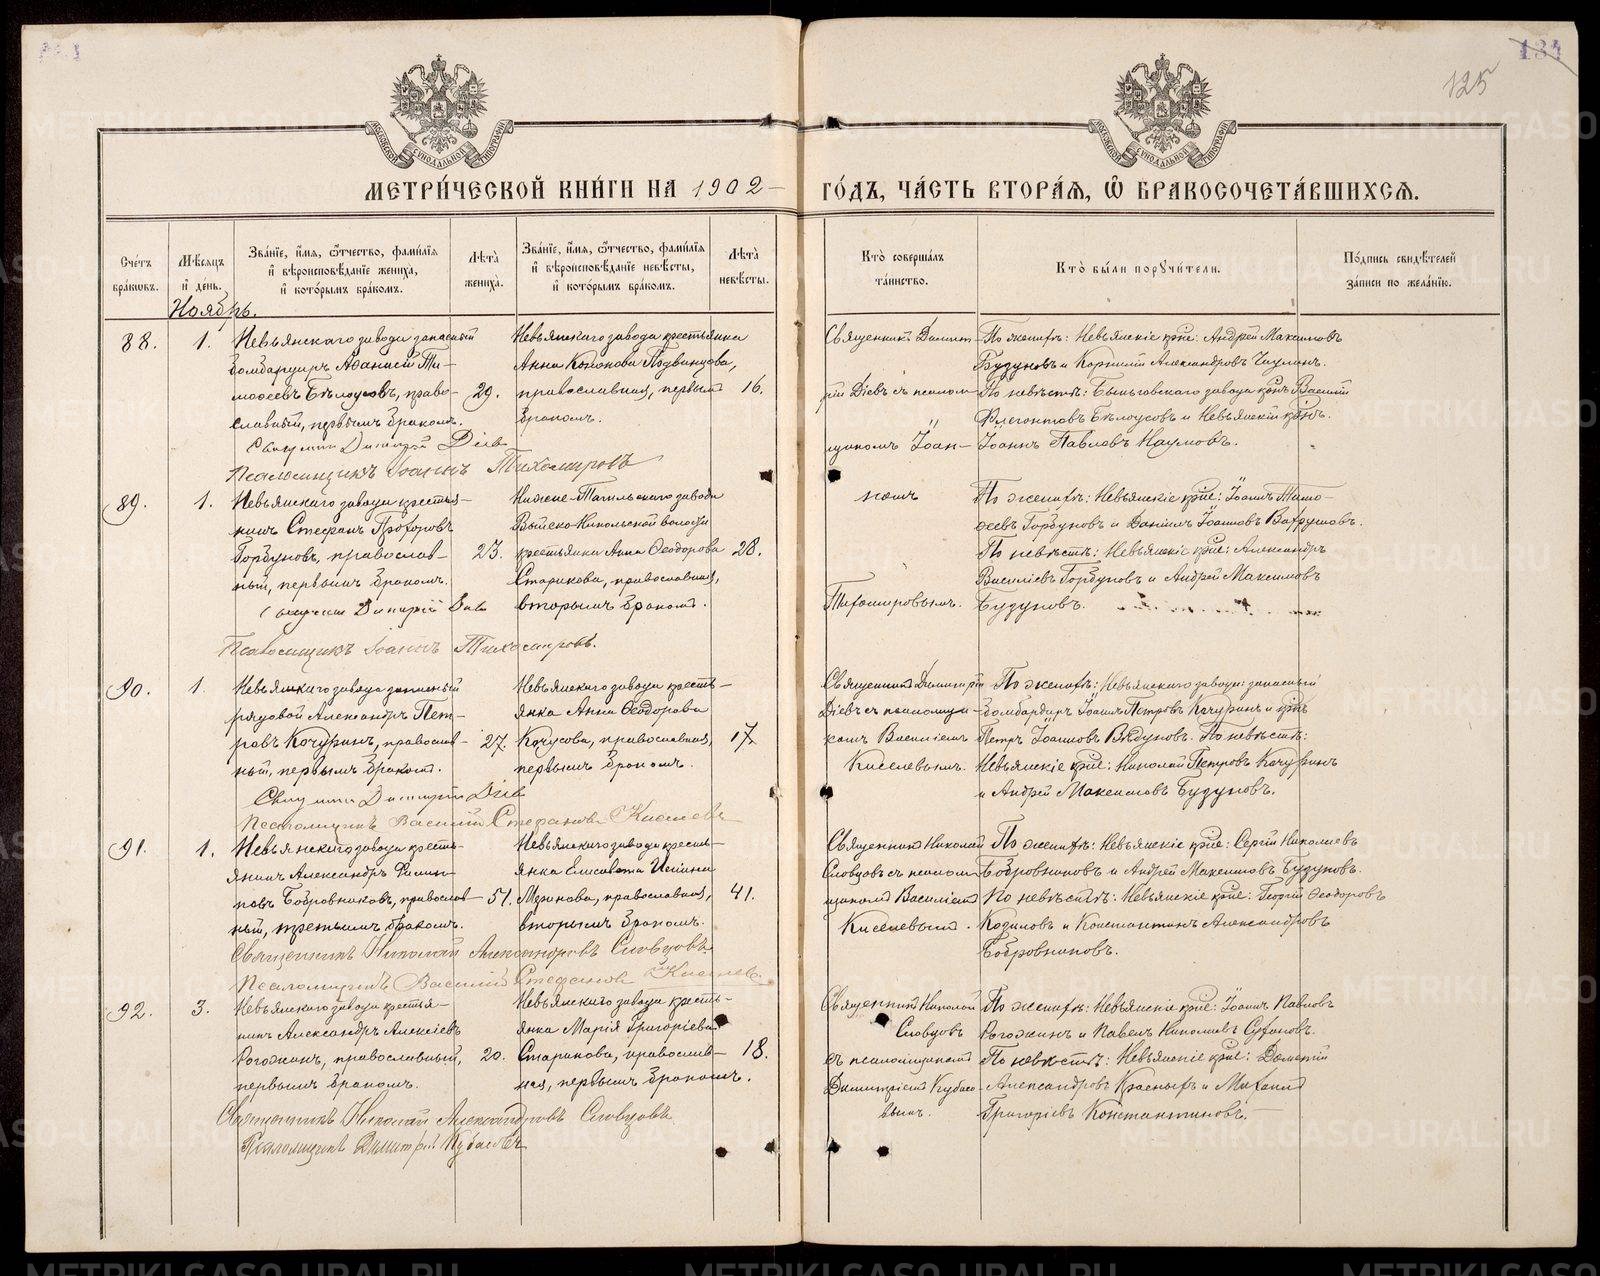 134
125
МОСКОВСКОЙ СѴНОДАЛЬНОЙ ТИПОГРАФІИ
МОСКОВСКОЙ СѴНОДАЛЬНОЙ ТИПОГРАФІИ
МЕТРИ́ЧЕСКОЙ КНИ́ГИ НА 1902 ГО́ДЪ, ЧА́СТЬ ВТОРА́Я, Ѽ БРАКОСОЧЕТА́ВШИХСЯ.
Сче́тъ бра́кѡвъ.
Мѣ́сяцъ и҆ де́нь.
Зва́нїе, и҆́мя, ѻ҆́тчество, фами́лїя и҆ вѣроисповѣ́данїе жениха̀, и҆ кото́рымъ бра́комъ.
Лѣ́та жениха̀.
Зва́нїе, и҆́мя, ѻ҆́тчество, фами́лїя и҆ вѣроисповѣ́данїе невѣ́сты, и҆ кото́рымъ бра́комъ.
Лѣ́та невѣ́сты.
Кто̀ соверша́лъ та́инство.
Кто̀ бы́ли порꙋчи́тели.
По́дпись свидѣ́телей за́писи по жела́нїю.
Ноябрь.
88.
1.
Невьянскаго завода запасный
бомбардиръ Аѳанасій Ти-
моѳеевъ Бѣлоусовъ, право-
славный, первымъ бракомъ.
29.
Невьянскаго завода крестьянка
Анна Кононова Подвинцова,
православная, первымъ
бракомъ.
16.
Священникъ Димит-
рій Діевъ съ псалом-
щикомъ Іоан-
номъ
Тихомировымъ.
По женихѣ: Невьянскіе кр-не: Андрей Максимовъ
Будуновъ и Корнилій Александровъ
По невѣстѣ: Быньговскаго завода кр-нъ Василій
Флегонтовъ Бѣлоусовъ и Невьянскій кр-нъ
Іоаннъ Павловъ Наумовъ.
Священникъ Димитрій Діевъ
Псаломщикъ Іоаннъ Тихомировъ
89.
1.
Невьянскаго завода крестья-
нинъ Стефанъ Прохоровъ
Горбуновъ, православ-
ный, первымъ бракомъ.
23.
Нижне-Тагильскаго завода
Выйско-Никольской волости
крестьянка Анна Ѳеодорова
Старикова, православная,
вторымъ бракомъ.
28.
По женихѣ: Невьянскіе кр-не: Іоаннъ Тимо-
ѳеевъ Горбуновъ и Даніилъ Іоанновъ Вахрушовъ.
По невѣстѣ: Невьянскіе кр-не: Александръ
Василіевъ Горбуновъ и Андрей Максимовъ
Будуновъ.
Священникъ Димитрій Діевъ
Псаломщикъ Іоаннъ Тихомировъ.
90.
1.
Невьянскаго завода запасный
рядовой Александръ Пет-
ровъ Кочуринъ, православ-
ный, первымъ бракомъ.
27.
Невьянскаго завода кресть-
янка Анна Ѳеодорова
Кокусова, православная,
первымъ бракомъ.
17.
Священникъ Димитрій
Діевъ съ псаломщи-
комъ Василіемъ
Киселевымъ.
По женихѣ: Невьянскаго завода: запасный
бомбардиръ Іоаннъ Петровъ Кочуринъ и кр-нъ
Петръ Іоанновъ Вѣдуновъ. По невѣстѣ:
Невьянскіе кр-не: Николай Петровъ Кочуринъ
и Андрей Максимовъ Будуновъ.
Священникъ Димитрій Діевъ
Псаломщикъ Василій Стефановъ Киселевъ
91.
1.
Невьянскаго завода кресть-
янинъ Александръ Филип-
повъ Бобровниковъ, православ-
ный, третьимъ бракомъ.
51.
Невьянскаго завода кресть-
янка Елисавета
православная,
вторымъ бракомъ.
41.
Священникъ Николай
Словцовъ съ псалом-
щикомъ Василіемъ
Киселевымъ.
По женихѣ: Невьянскіе кр-не: Сергій Николаевъ
Бобровниковъ и Андрей Максимовъ Будуновъ.
По невѣстѣ: Невьянскіе кр-не: Георгій Ѳеодоровъ
Козиловъ и Константинъ Александровъ
Бобровниковъ.
Священникъ Николай Александровъ Словцовъ
Псаломщикъ Василій Стефановъ Киселевъ
92.
3.
Невьянскаго завода крестья-
нинъ Александръ Алексіевъ
Рогожинъ, православный,
первымъ бракомъ.
20.
Невьянскаго завода кресть-
янка Марія Григоріева
Старикова, православ-
ная, первымъ бракомъ.
18.
Священникъ Николай
Словцовъ
съ псаломщикомъ
Димитріемъ Кубасо-
вымъ.
По женихѣ: Невьянскіе кр-не: Іоаннъ Павловъ
Рогожинъ и Павелъ Николаевъ Сухановъ.
По невѣстѣ: Невьянскіе кр-не: Дометій
Александровъ Красныхъ и Михаилъ
Григоріевъ Константиновъ.
Священникъ Николай Александровъ Словцовъ
Псаломщикъ Димитрій Кубасовъ
METRIKI.GASO-URAL.RU